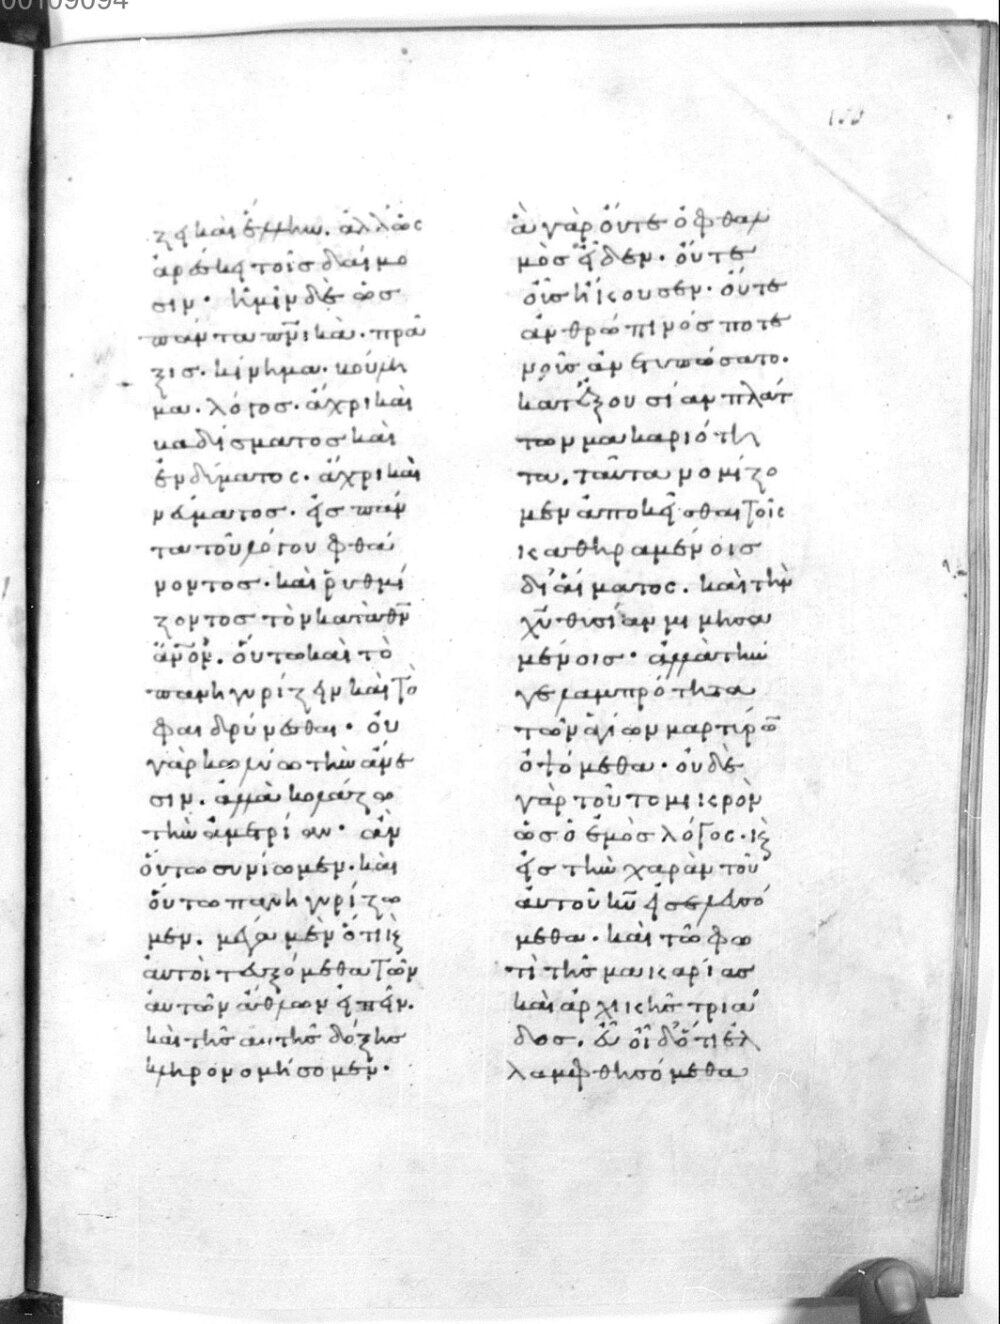 00109094
ζει καὶ ἕλλην. ἀλλ' ὡς
ἀρέσκει τοῖς δαίμο
σιν· ἡμῖν δὲ ὡς
πάντα πνικὰ· πρᾶ
ξις· κίνημα· νούμη
μα· λόγος· ἄχρι καὶ
βαδίσματος καὶ
ἐνδύματος· ἄχρι καὶ
νεύματος· εἰς πάν
τα τοῦ λόγου φθά
νοντος· καὶ ῥυθμί
ζοντος τὸν κατὰ θν
ἄνον. οὕτω καὶ τὸ
πανηγυρίζειν καὶ τὸ
φαιδρύνεσθαι· οὐ
γὰρ κωλύω τὴν ἄνε
σιν. ἀλλὰ κολάζω
τὴν ἀμετρίαν· ἂν
οὕτω συνίωμεν· καὶ
οὕτω πανηγυρίζω
μεν. μέγα μὲν ὅτι κ
αὐτοὶ τευξόμεθα τῶν
αὐτῶν ἄθλων εἰπεῖν.
καὶ τῆς αὐτῆς δόξης
κληρονομήσομεν·
ἃ γὰρ οὔτε ὀφθαλ
μὸς εἶδεν· οὔτε
οὖς ἤκουσεν· οὔτε
ἀνθρώπινός ποτε
νοῦς ἀνετυπώσατο·
κατ' ἐξουσίαν πλάτ
των μακαριότη
τα. ταῦτα νομίζο
μεν ἀποκεῖσθαι τοῖς
καθηραμένοις
δι' αἵματος. καὶ τὴν
χυ θυσίαν μιμησα
μένοις· ἀλλὰ τήν
γε λαμπρότητα
τῶν ἁγίων μαρτύρω
ὀψόμεθα· οὐδὲ
γὰρ τοῦτο μικρὸν
ὡς ὁ ἐμὸς λόγος· κ
εἰς τὴν χαρὰν τοῦ
αὐτοῦ κυ εἰσελευσό
μεθα· καὶ τῷ φω
τὶ τῆς μακαρίας
καὶ ἀρχικῆς τριά
δος. εὖ οἶδ' ὅτι ἐλ
λαμφθησόμεθα